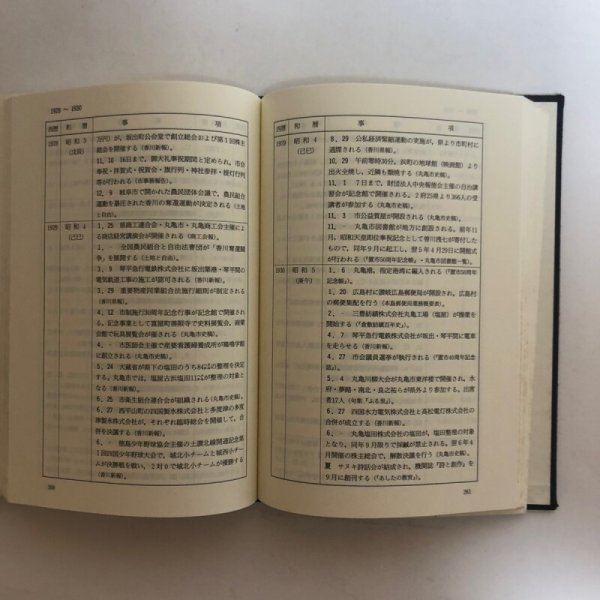 1928 ～ 1930
西暦 和暦 事 項
1928 昭和3 万円)が、坂出町公会堂で創立総会および第1回株主
(戊辰) 総会を開催する(香川新報)。
11、10 16日まで、御大礼奉祝期間と定められ、市会
奉祝・拝賀式・祝賀会・旗行列・神社参拝・提灯行列
等が行われる(市事務報告)。
12、9 岐阜市で開かれた農民団体会議で、農民組合
を暴圧された香川の奪還運動が決定される(土地
と自由)。
1929 昭和4 1、25 県商工連合会・丸亀市・丸亀商工会主催によ
(己巳) る商店経営講演会が開催される(商工会報)。
1、- 全国農民組合と自由法曹団が「香川奪還闘
争」を展開する(土地と自由)。
3、9 琴平急行電鉄株式会社に坂出築港・琴平間の
電気軌道工事の施工が認可される(香川新報)。
3、29 重要物産同業組合法施行細則が制定される
(香川新報)。
4、12 市制施行30周年記念式が記念館で開催され
る。記念事業として宣屋町御殿寺で史料展覧会、商業
会館で玩具展覧会が催される(丸亀市史稿)。
4、- 市医師会主催で産婆看護婦養成所が鳩鳴学館
に創立される(丸亀市史稿)。
5、24 大蔵省が県下の塩田のうち84町の整理を決定す
る。丸亀市では、塩屋古浜塩田11町が整理の対象と
なる(香川新報)。
5、25 市衛生組合連合会が組織される(丸亀市史稿)。
6、27 西平山町の四国製氷株式会社と多度津の多度
津製氷株式会社が、それぞれ臨時総会を開催して、合
併を決議する(香川新報)。
6、- 徳島少年野球協会主催の土讃北線開通記念第
1回四国少年野球大会で、城北小チームと城西小チー
ムが決勝戦を戦い、2対0で城北小チームが優勝する
(香川新報)。
280
西暦 和暦 事 項
1929 昭和4 8、29 公私経済緊縮運動の実施が、県より市町村に
(己巳) 通牒される(香川新報)。
10、29 午前零時30分、浜町の地球館(映画館)より
出火大全焼し、近隣も類焼する(丸亀市史稿)。
11、1 7日まで、財団法人中央報徳会主催の自治講
習会が記念館で開催される。2府25県より366人の受
講者が参加する(丸亀市史稿)。
11、3 市公益質屋が開設される(丸亀市史稿)。
11、- 丸亀市図書館が地方に創設される。前年11
月、昭和天皇即位奉祝記念として香川茂七が寄付した
もので、同年9月に起工し、翌5年4月29日に開館式
が行われる(『置市50周年記念帳』・丸亀市図書館一覧)。
1930 昭和5 1、6 丸亀港、指定港湾に編入される(『置市50周年記
(庚午) 念帳』)。
1、20 広島村に讃岐広島郵便局が開設され、広島村
の郵便集配を行う(本島郵便局業務概要表)。
2、- 三豊紡績株式会社丸亀工場(塩屋)が操業を
開始する(『倉敷紡績百年史』)。
4、7 琴平急行電鉄株式会社が坂出・琴平間に電車
を走らせる(香川新報)。
4、27 市会議員選挙が執行される(『置市40周年記念
誌』)。
5、4 丸亀川柳大会が丸亀市東洋楼で開催され、水
府・夢路・南北・良之祐らが県外より参加する。出席
者17人(句集『ふる里』)。
6、27 四国水力電気株式会社と高松電灯株式会社の
合併が成立する(丸亀市史稿)。
6、- 丸亀塩田株式会社の塩田が、塩田整理の対象
となり、同年9月限りで採鹹が禁止される。翌6年4
月開催の株主総会で、解散決議を行う(丸亀市史稿)。
夏 サヌキ詩話会が結成され、機関誌『詩と創作』を
9月に創刊する(『あしたの教育』)。
281